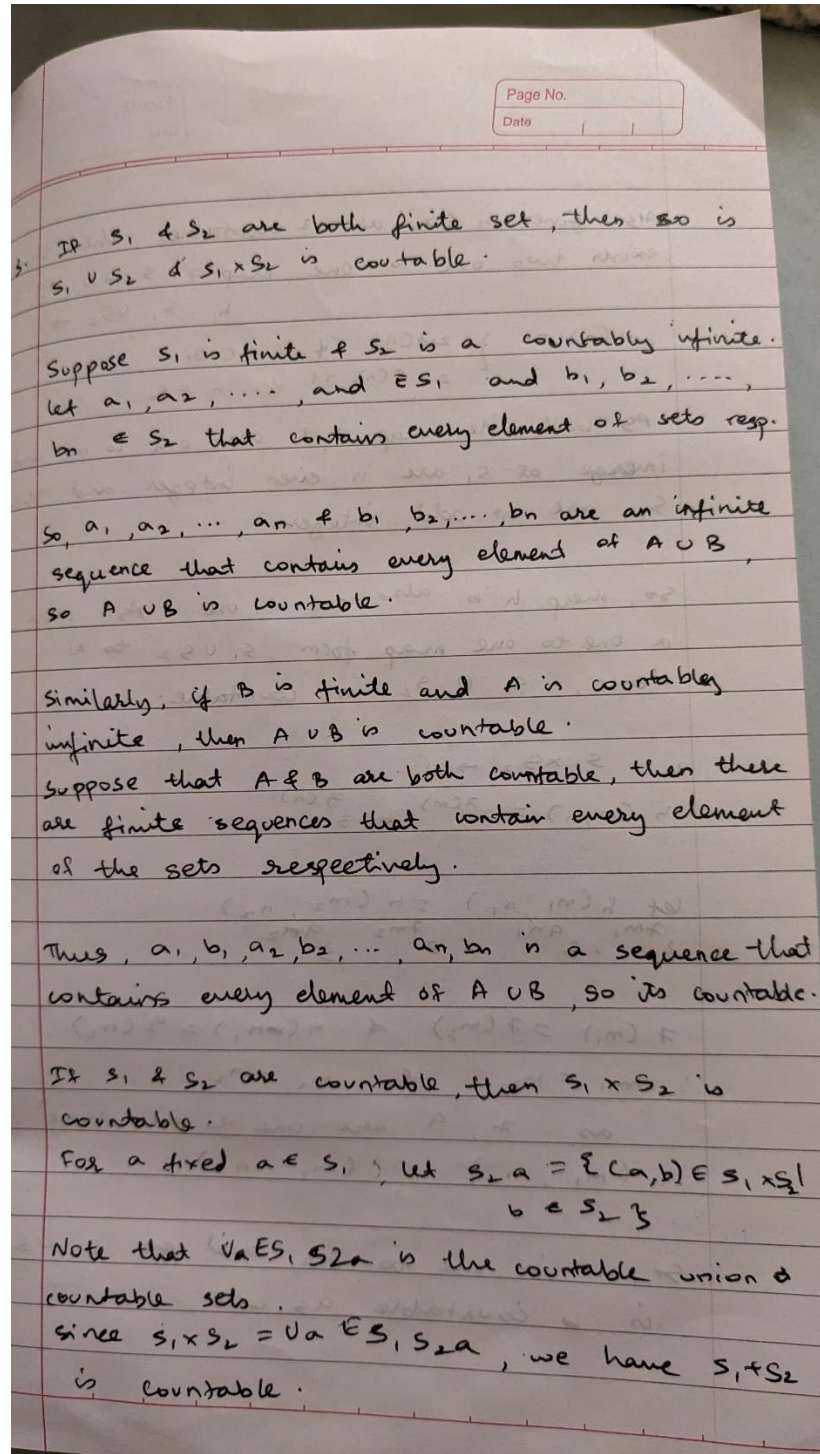 Page No.
Date
3. If S1 & S2 are both finite set, then so is
S1 ∪ S2 & S1 × S2 is coutable.
Suppose S1 is finite & S2 is a countably infinite.
let a1, a2, ...., and ∈ S1 and b1, b2, ....,
bn ∈ S2 that contains every element of sets resp.
So, a1, a2, ..., an & b1, b2, ...., bn are an infinite
sequence that contains every element of A ∪ B,
so A ∪ B is countable.
Similarly, if B is finite and A is countably
infinite, then A ∪ B is countable.
Suppose that A & B are both countable, then there
are finite sequences that contain every element
of the sets respectively.
Thus, a1, b1, a2, b2, ... an, bn is a sequence that
contains every element of A ∪ B, so its countable.
If S1 & S2 are countable, then S1 × S2 is
countable.
For a fixed a ∈ S1, let S2 a = {(a,b) ∈ S1 × S2 |
b ∈ S2}
Note that ∪a∈S1 S2a is the countable union of
countable sets.
since S1 × S2 = ∪a ∈ S1 S2a, we have S1 + S2
is countable.